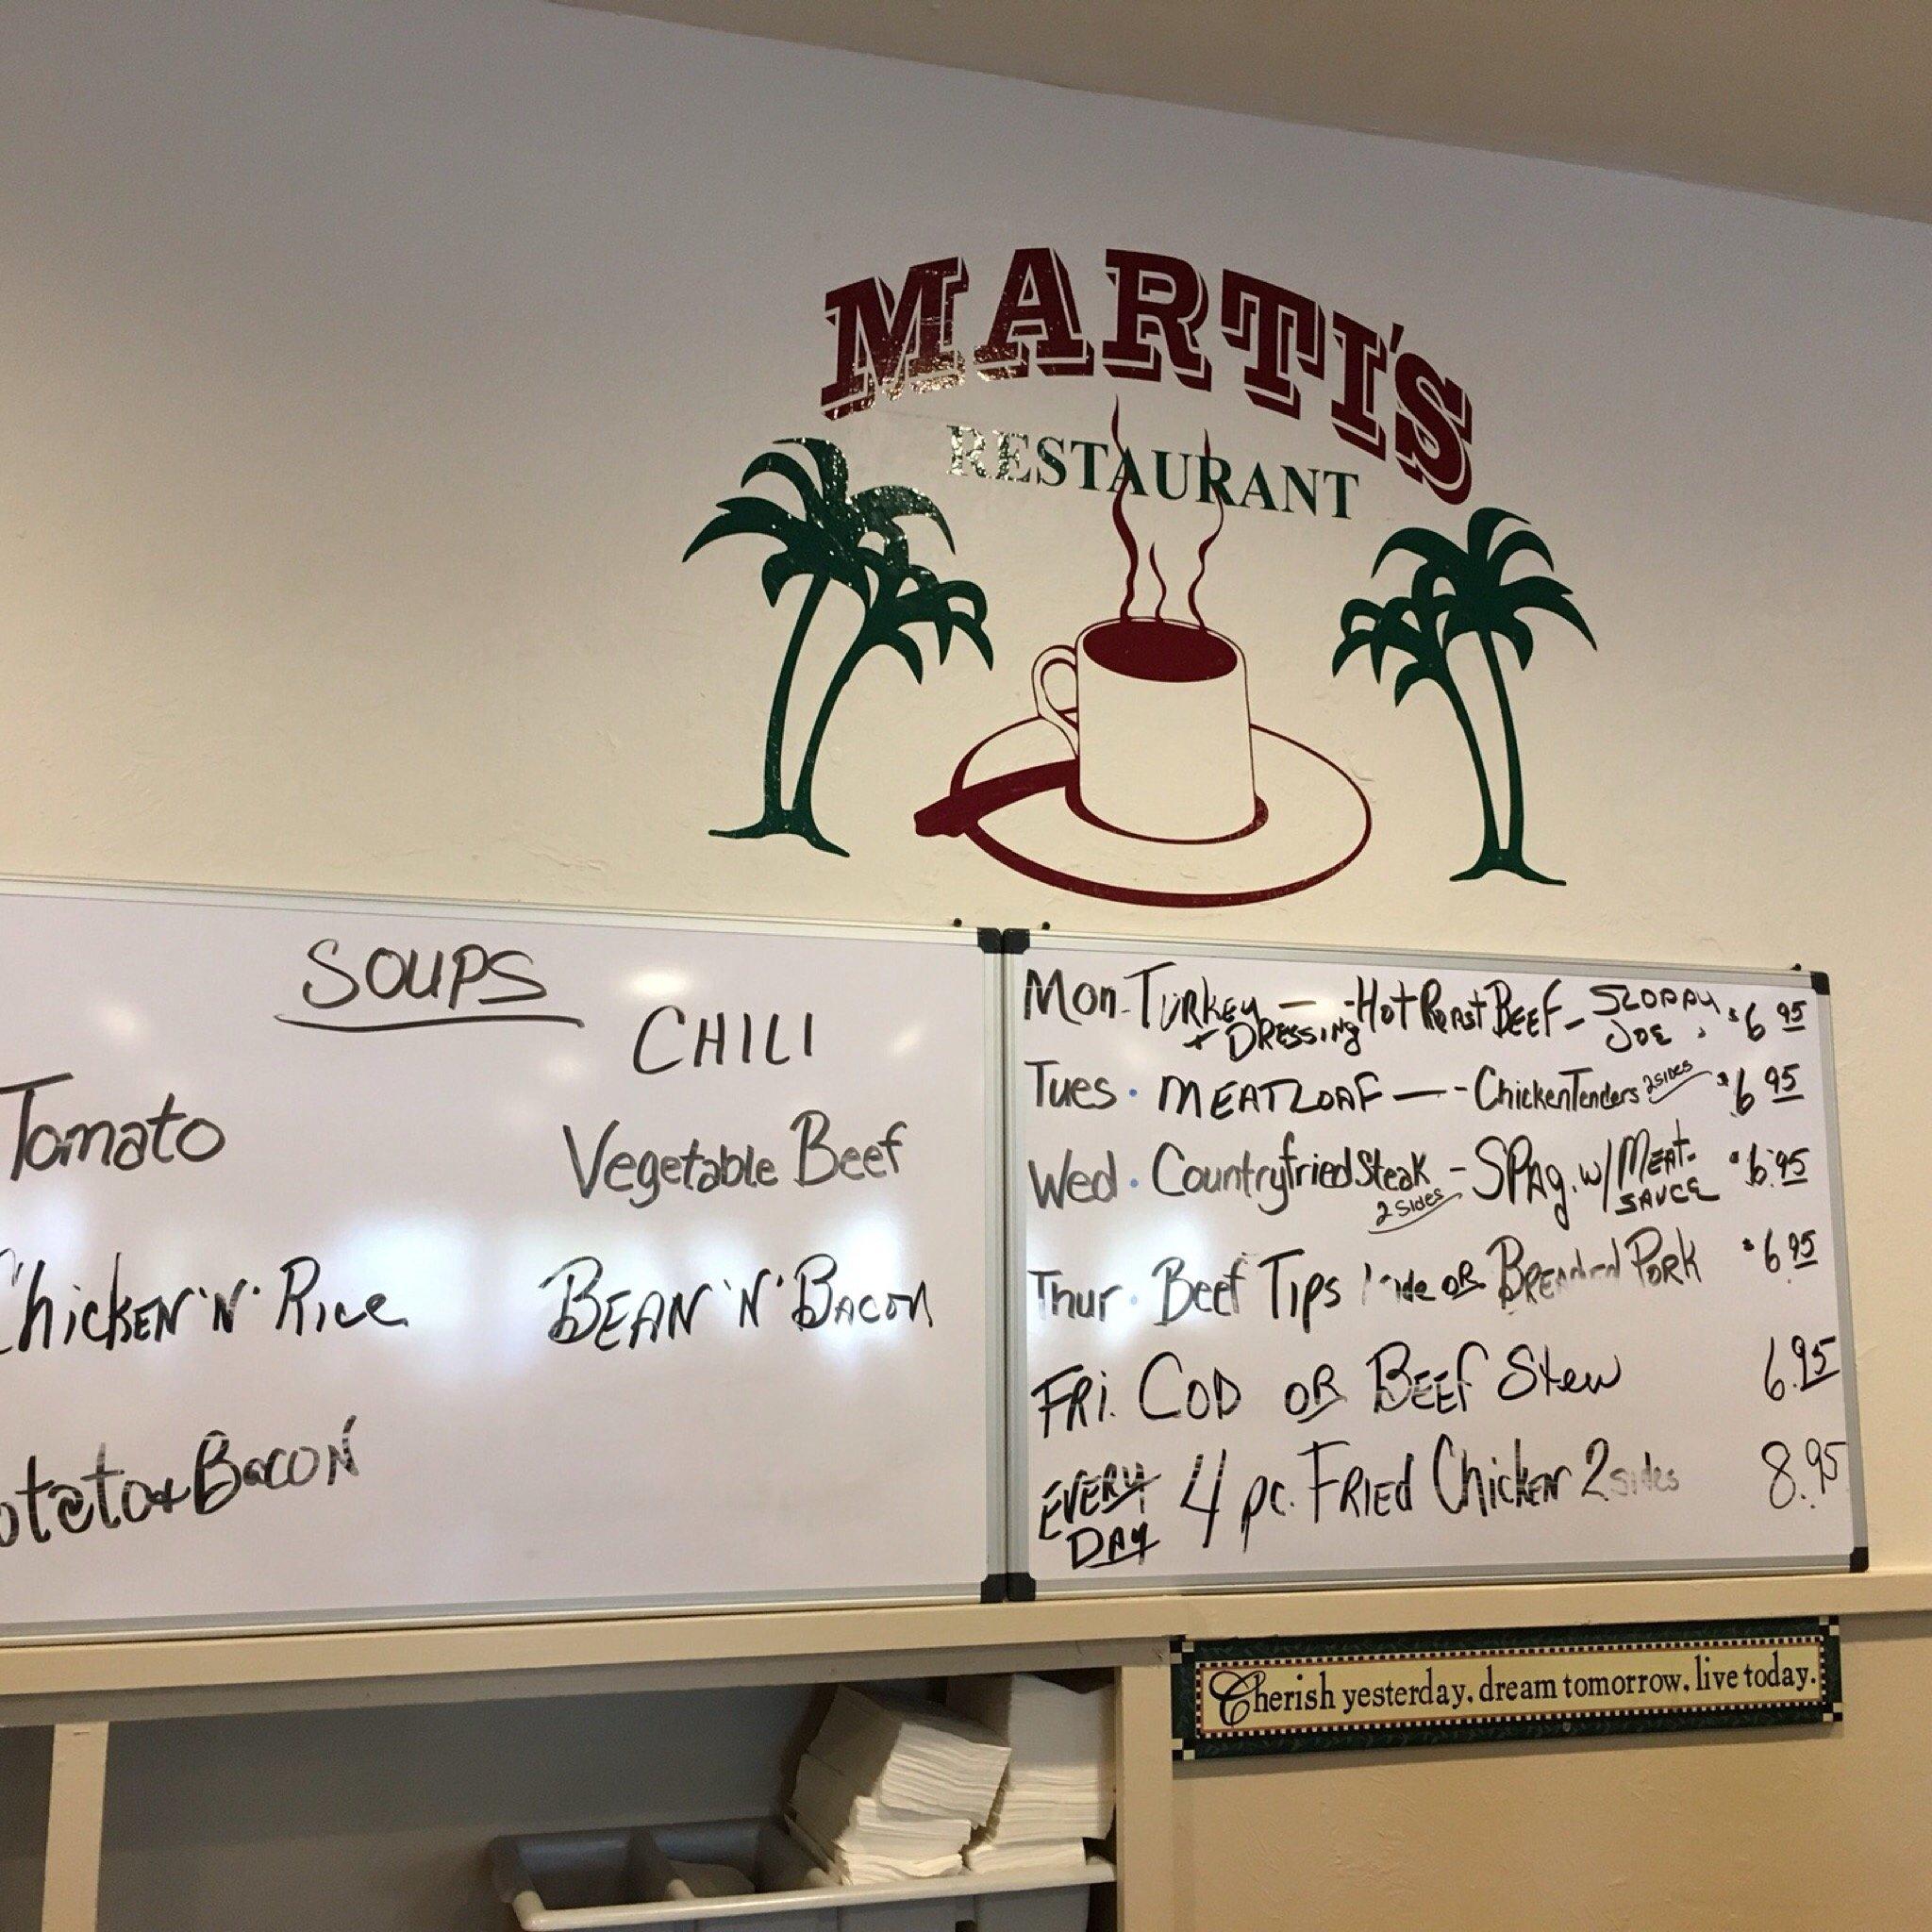 MARTI'S
RESTAURANT
SOUPS
CHILI
Tomato
Vegetable Beef
Chicken 'N' Rice
BEAN 'N' BACON
otato & Bacon
Mon - Turkey + Dressing — - Hot Roast Beef - Sloppy Joe $6 95
Tues · MEATLOAF — - Chicken Tenders 2 sides $6 95
Wed · Countryfried Steak 2 sides - SPAg. w/ MEAT SAUCE $6.95
Thur · Beef Tips OR Breaded Pork $6 95
FRi. COD OR BEEF Stew 6.95
EVERY DAY 4 pc. FRIED Chicken 2 sides 8.95
Cherish yesterday, dream tomorrow, live today.